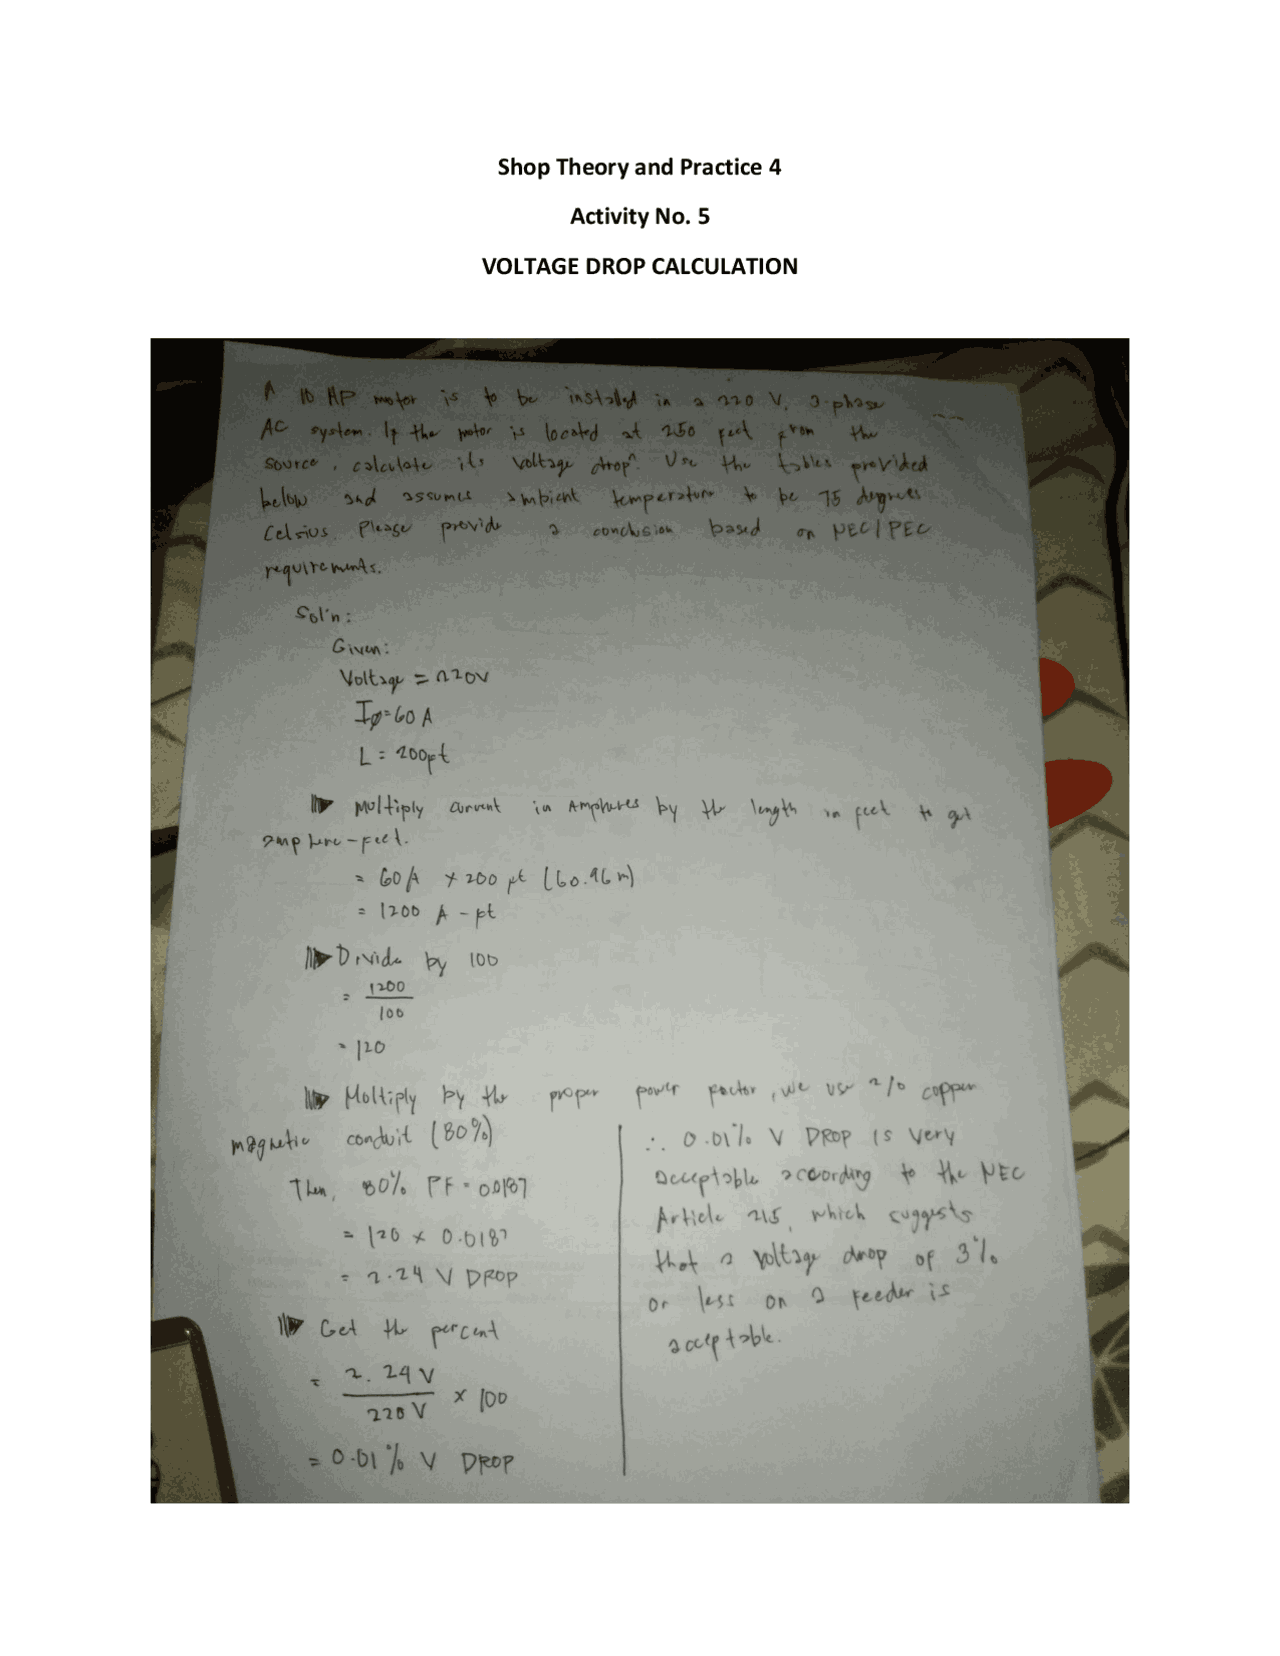 Shop Theory and Practice 4
Activity No. 5
VOLTAGE DROP CALCULATION
A 10 HP motor is to be installed in a 220 V, 3-phase
AC system. If the motor is located at 250 feet from the
source, calculate its voltage drop. Use the tables provided
below and assumes ambient temperature to be 75 degrees
Celsius. Please provide a conclusion based on NEC/PEC
requirements.
Sol'n:
Given:
Voltage = 220V
IØ=60 A
L = 200ft
Multiply current in Ampheres by the length in feet to get
amphere-feet.
= 60A x 200 ft (60.96 m)
= 1200 A-ft
Divide by 100
= 1200
100
= 120
Multiply by the proper power factor, we use 2/0 copper
magnetic conduit (80%)
Then, 80% PF = 0.0187
= 120 x 0.0187
= 2.24 V DROP
Get the percent
= 2.24 V
220 V
x 100
= 0.01% V DROP
∴ 0.01% V DROP is very
acceptable according to the NEC
Article 215, which suggests
that a voltage drop of 3%
or less on a feeder is
acceptable.